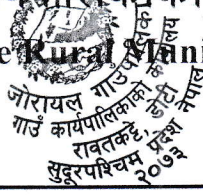 e Rural Muni
जोरायल गाउँपालिका
गाउँ कार्यपालिकाको कार्यालय
रावतकट्टे, डोटी
सुदूरपश्चिम प्रदेश नेपाल
२०७३